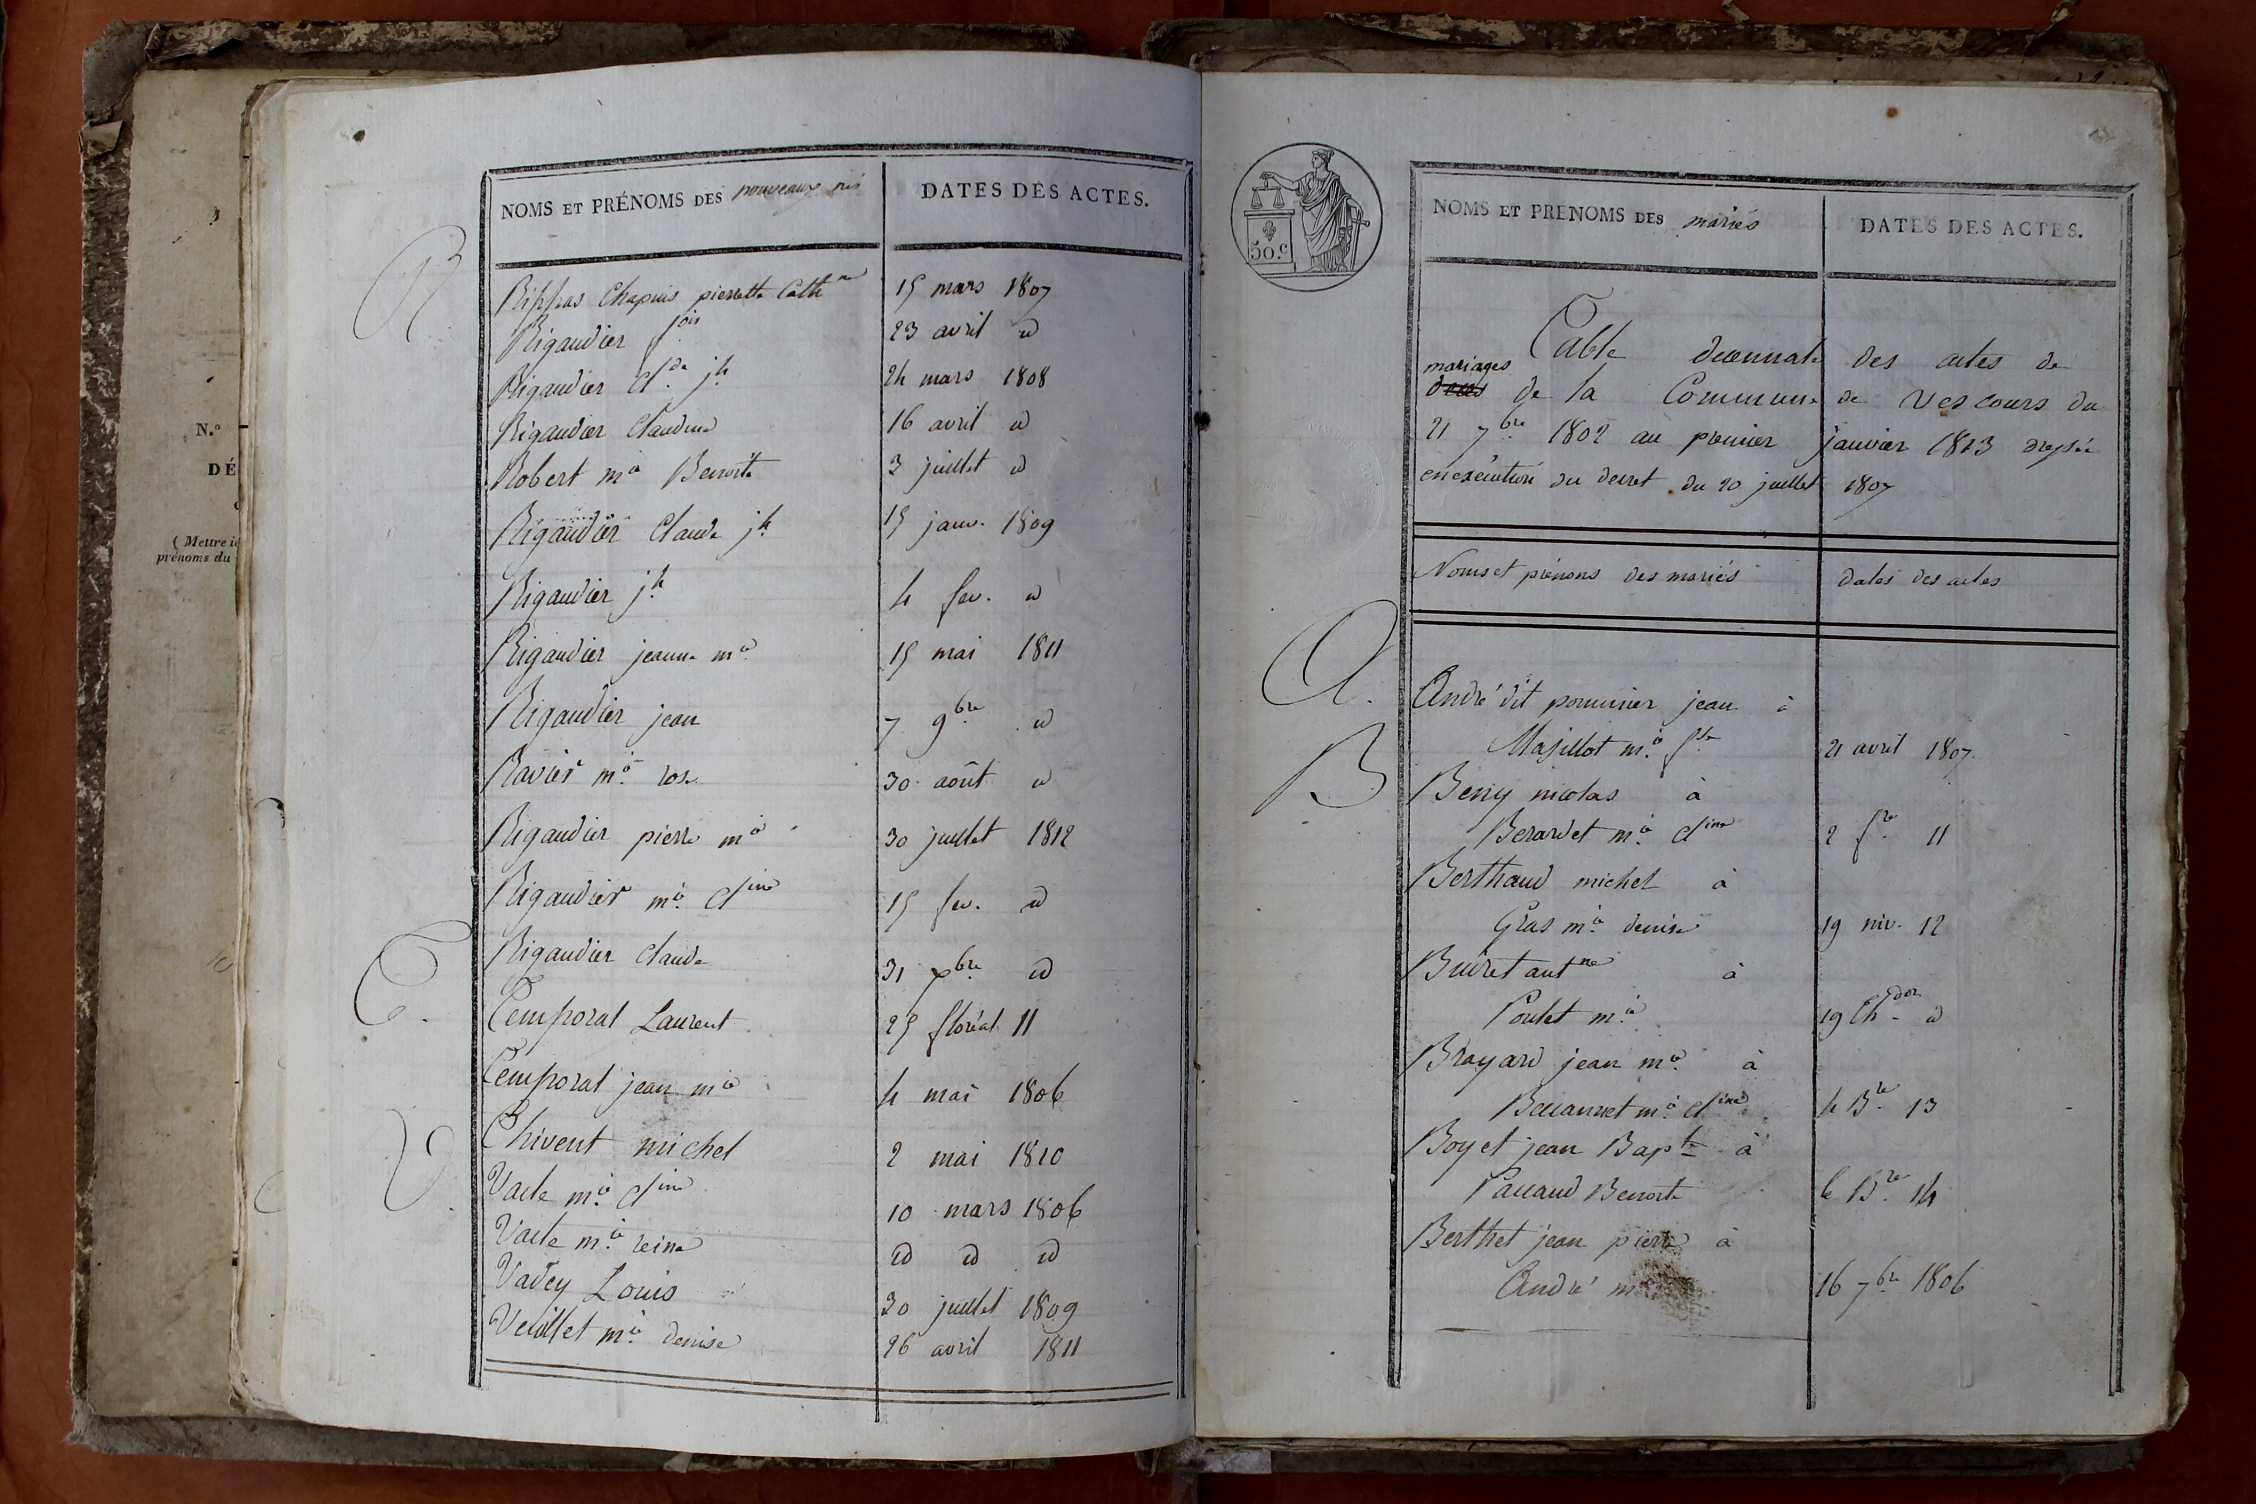 N.º
DÉ
( Mettre ic
prénoms du
NOMS ET PRÉNOMS DES nouveaux nés
DATES DES ACTES.
R
Riffas Chapuis pierrette Cathne 15 mars 1807
Rigaudier fois 23 avril id
Rigaudier Clde jh 24 mars 1808
Rigaudier Claudine 16 avril id
Robert mie Benoite 3 juillet id
Rigaudier Claude jh 15 janv. 1809
Rigaudier jh 4 fev. id
Rigaudier jeanne mie 15 mai 1811
Rigaudier jean 7 9bre id
Ravier mie rose 30 août id
Rigaudier pierre mie 30 juillet 1812
Rigaudier mie Cline 15 fev. id
Rigaudier Claude 31 xbre id
T.
Temporal Laurent 25 floréal 11
Temporal jean mie 4 mai 1806
Thivent michel 2 mai 1810
V.
Vacle mie Cline 10 mars 1806
Vacle mie reine id id id
Vadey Louis 30 juillet 1809
Veuillet mie denise 26 avril 1811
50.c
NOMS ET PRENOMS DES mariés
DATES DES ACTES.
Table decennale des actes de
mariages
deces de la Commune de Vescours du
21 7bre 1802 au premier janvier 1813 dressée
en exécution du decret du 20 juillet 1807
Noms et prénoms des mariés dates des actes
A.
André dit pommier jean à
Majillot mie fse 21 avril 1807
B
Beny nicolas à
Berardet mie Cline 2 fre 11
Berthaud michel à
Gras mie denise 19 niv. 12
Buiret antne à
Poulet mie 19 thdor id
Brayard jean mie à
Bouannet mie Cline 4 Bre 13
Boyet jean Bapte à
Pauaud Benoite 6 Bre 14
Berthet jean pierre à
André 16 7bre 1806